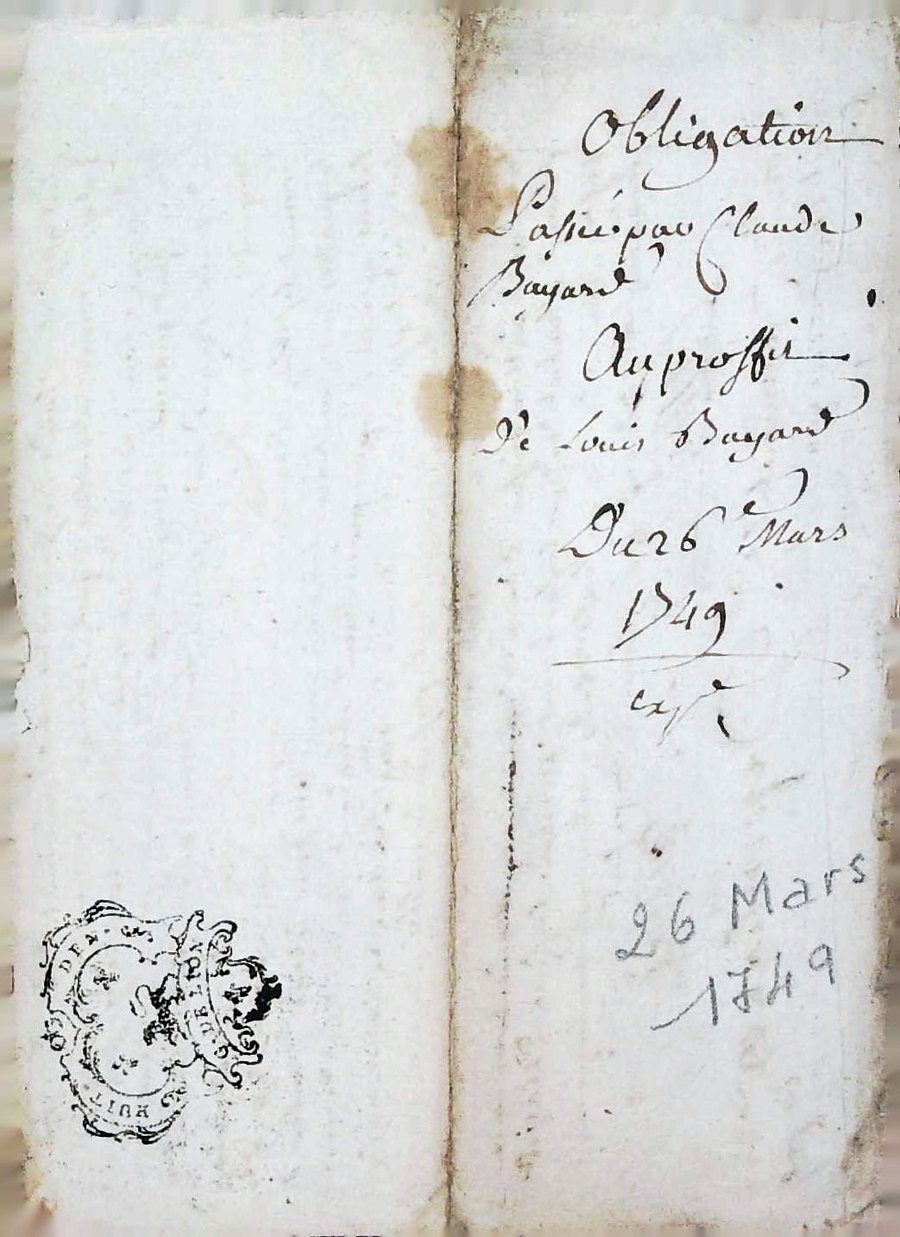 Obligation
Passée par Claude
Bayard
Au proffit
De Louis Bayard
Du 26e Mars
1749
exp.e
26 Mars
1749
HUIT DEN.
G. DE LYON